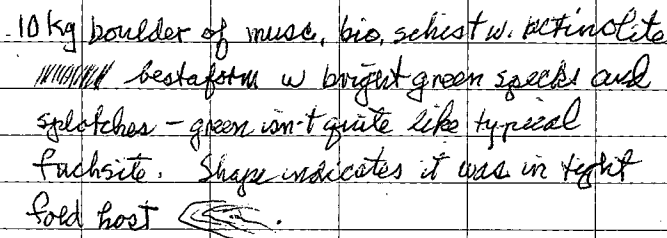 10 kg boulder of musc, bio, schist w. actinolite
bestaform w bright green specks and
splotches - green isn't quite like typical
fuchsite. Shape indicates it was in tight
fold host .